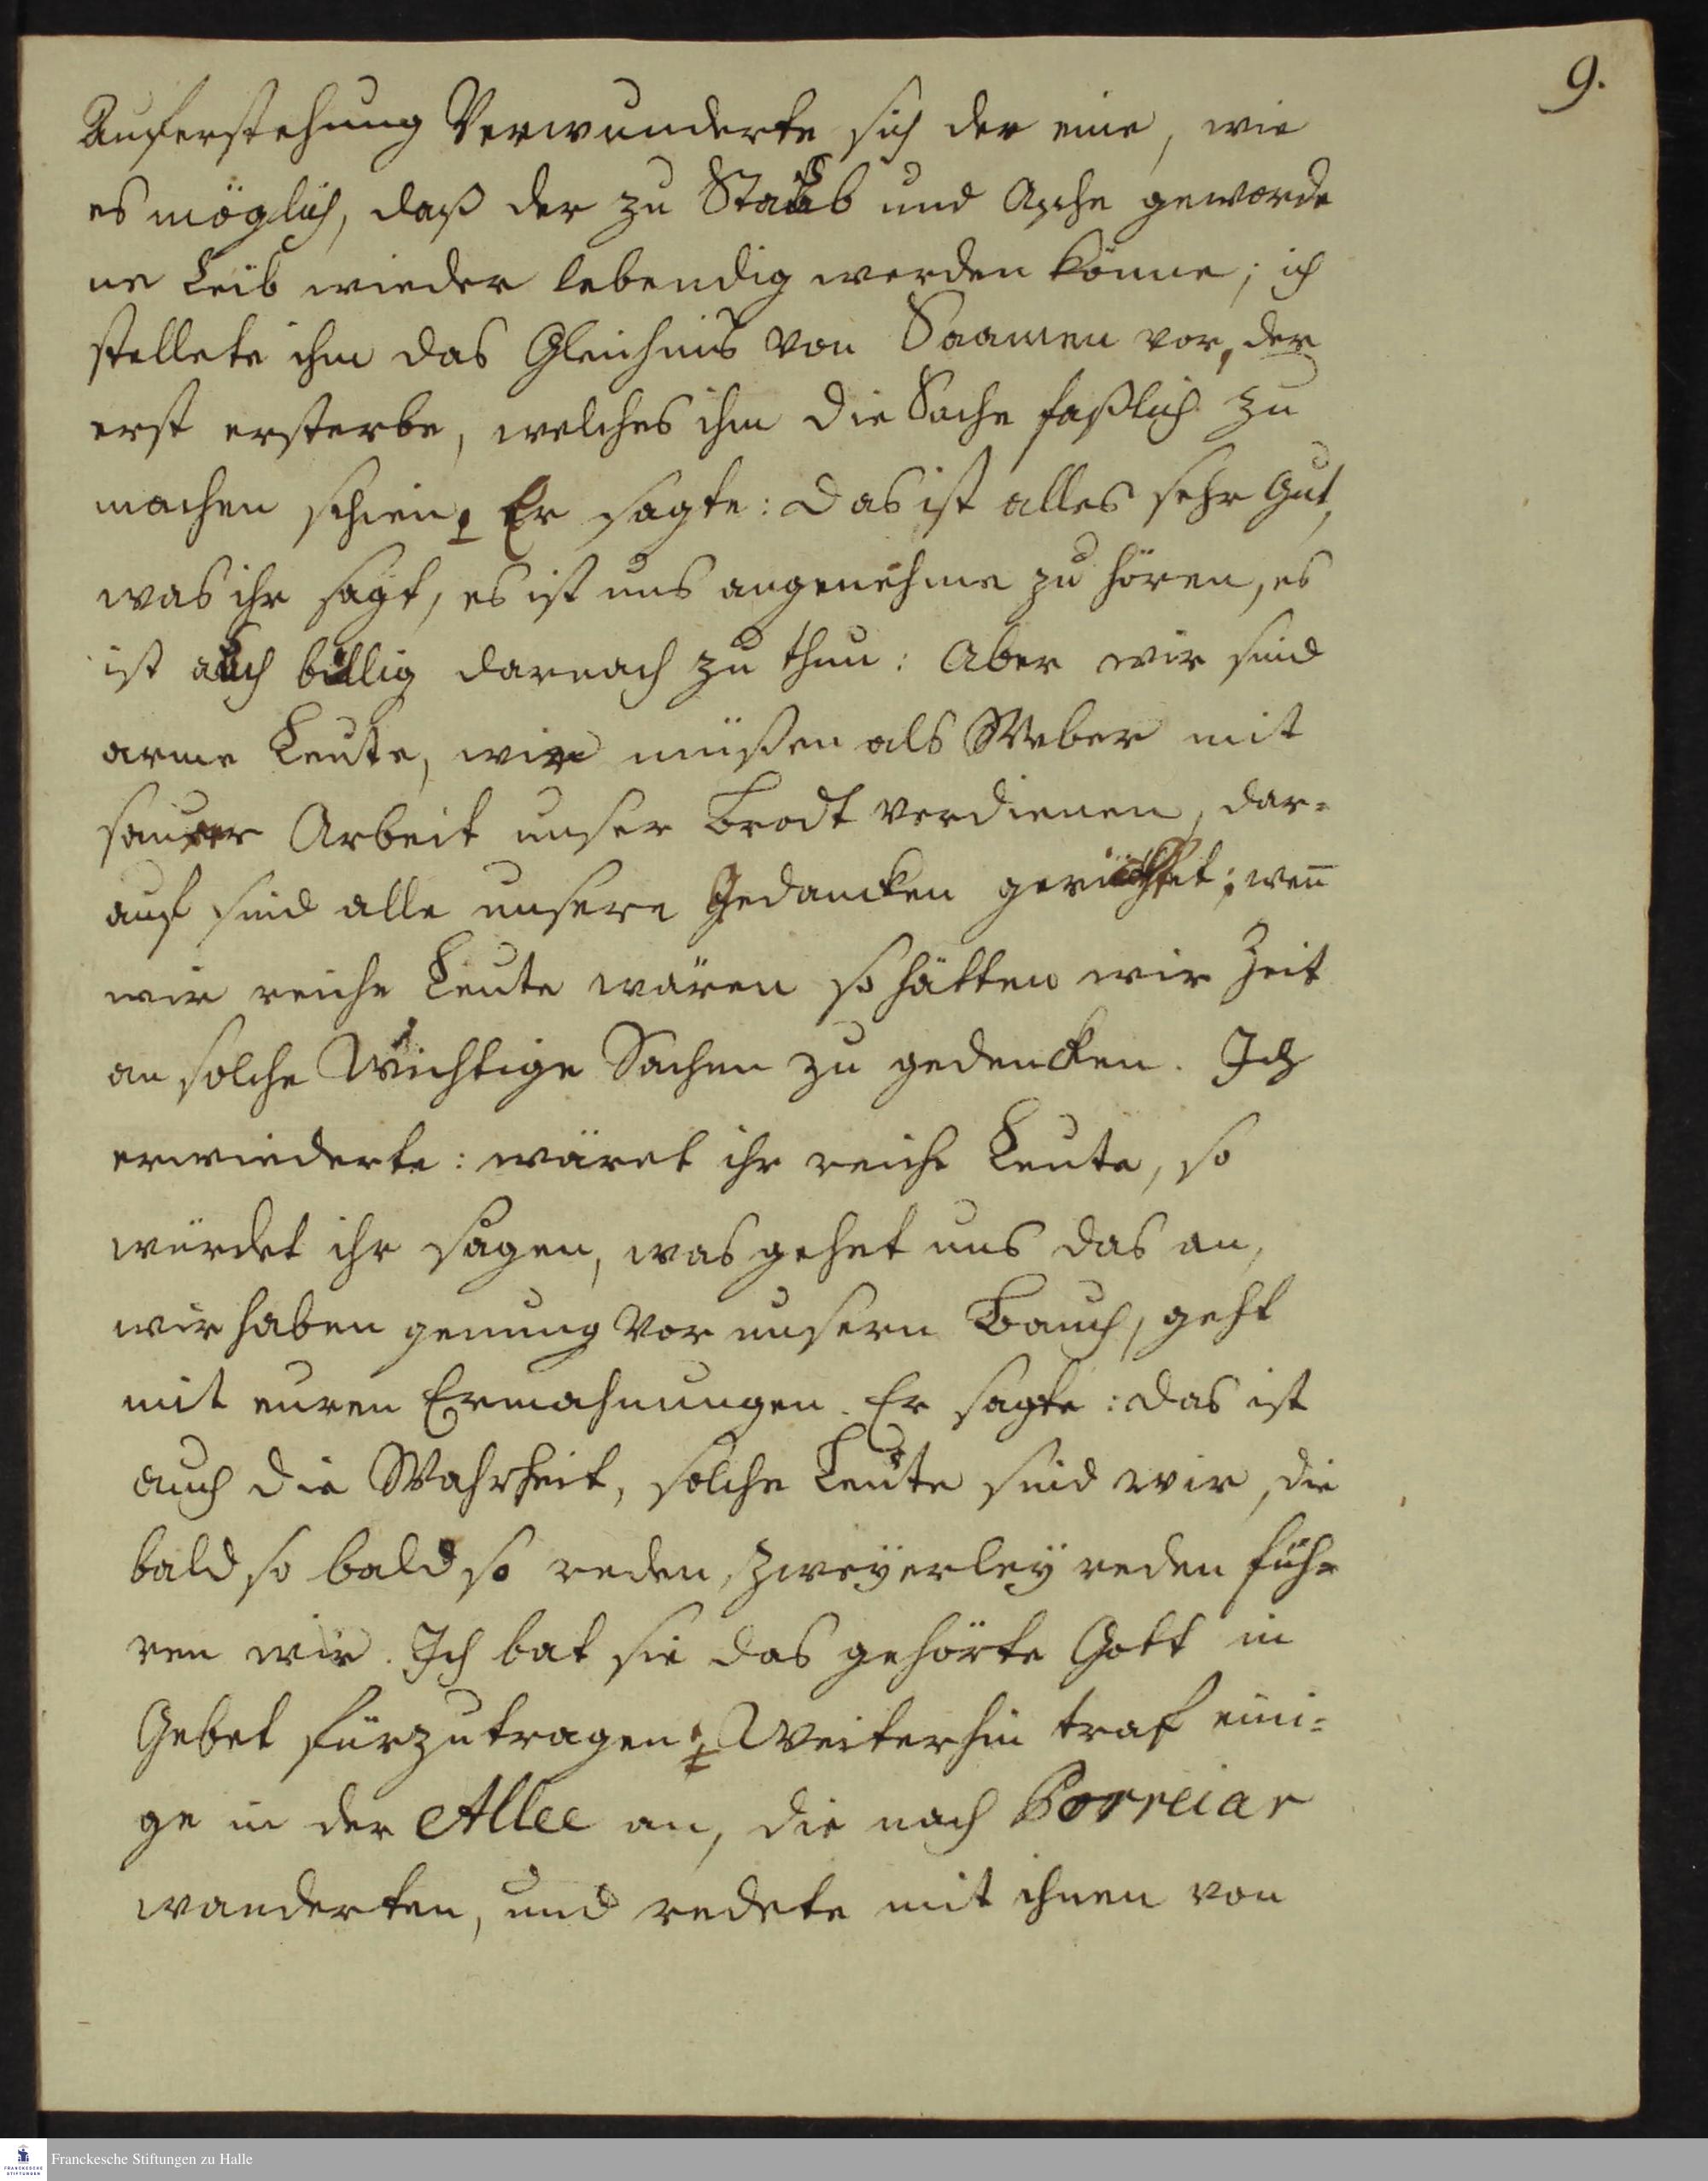 9.
Auferstehung Verwunderte sich der eine, wie
es möglich, daß der zu Staub und Asche geworde
ne Leib wieder lebendig werden könne; ich
stellete ihm das Gleichnis von Saamen vor, der
erst ersterbe, welches ihm die Sache faßlich zu
machen schien. Er sagte: das ist alles sehr Gut,
was ihr sagt, es ist uns angenehme zu hören, es
ist auch billig darnach zu thun: Aber wir sind
arme Leute, wir müßen als Weber mit
saurer Arbeit unser Brodt verdienen, dar=
auf sind alle unsere Gedancken gerichtet; weñ
wir reiche Leute wären so hätten wir Zeit
an solche Wichtige Sachen zu gedencken. Ich
erwiederte: wäret ihr reiche Leute, so
würdet ihr sagen, was gehet uns das an,
wir haben genung vor unsern Bauch, geht
mit euren Ermahnungen. Er sagte: das ist
auch die Wahrheit, solche Leute sind wir, die
bald so bald so reden, zweÿerleÿ reden füh=
ren wir. Ich bat sie das gehörte Gott in
Gebet fürzutragen. Weiterhin traf eini=
ge in der Allee an, die nach Porreiar
wanderten, und redete mit ihnen von
Franckesche Stiftungen zu Halle
FRANCKESCHE
STIFTUNGEN